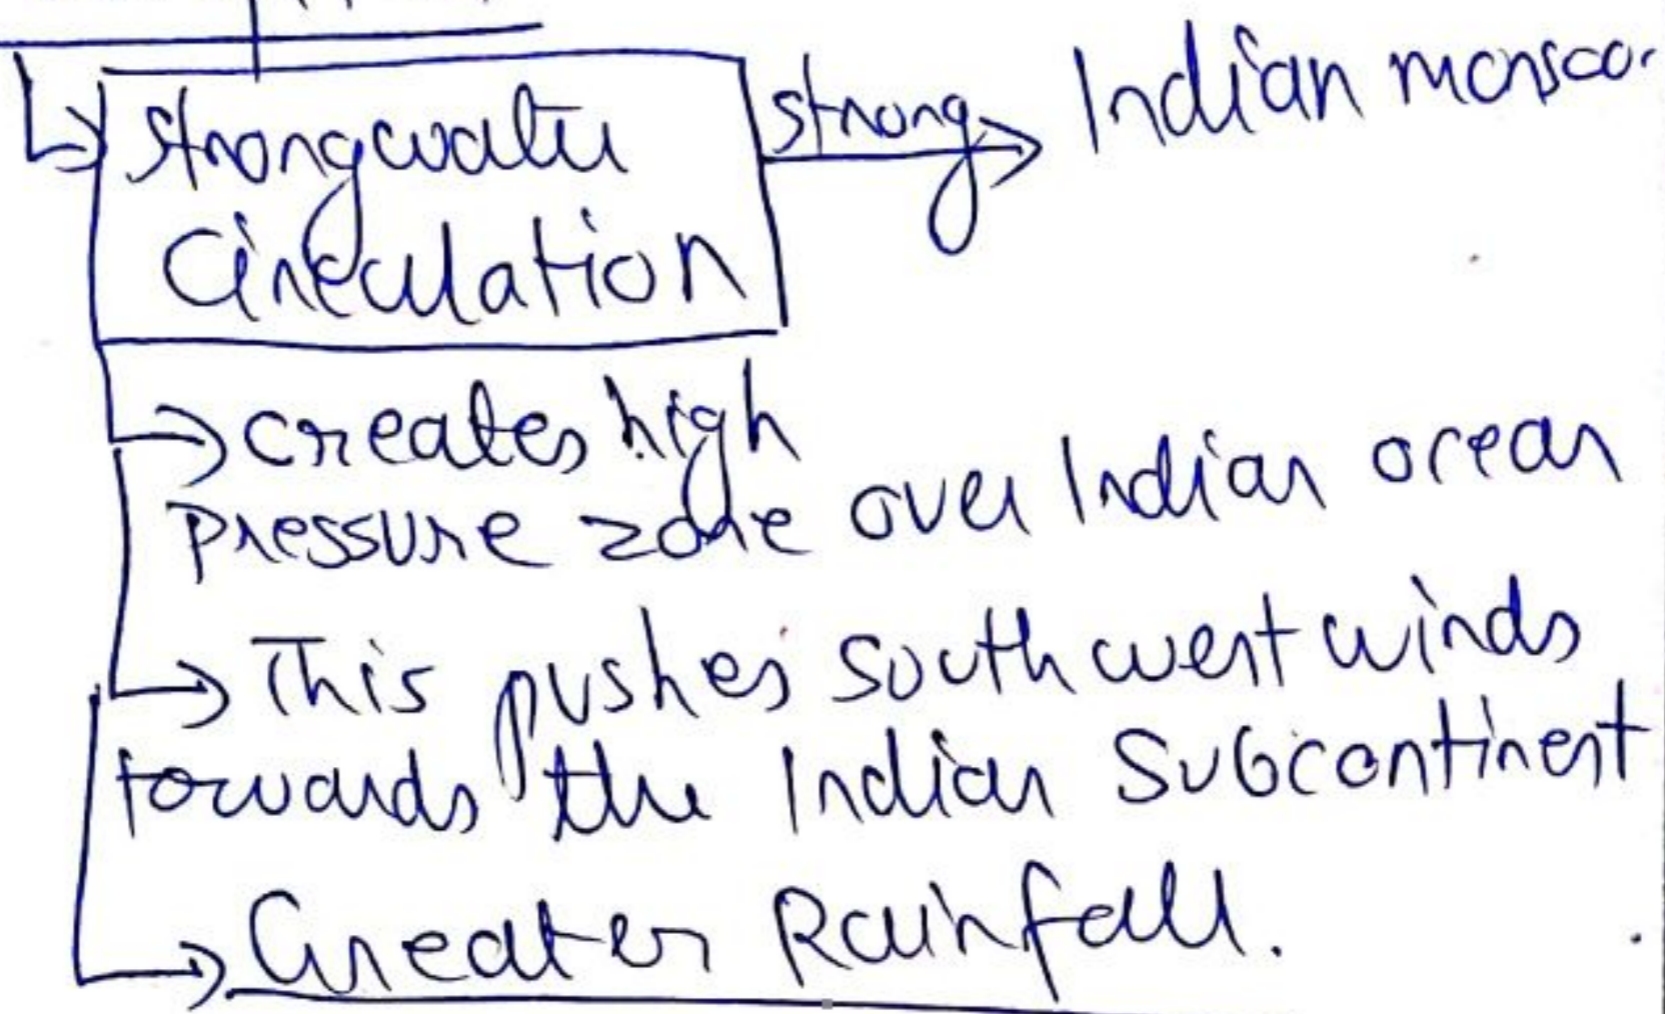 strong walter strong Indian monsoo
Circulation
creates high
pressure zone over Indian ocean
This pushes southwest winds
towards the Indian Subcontinent
Greater Rainfall.